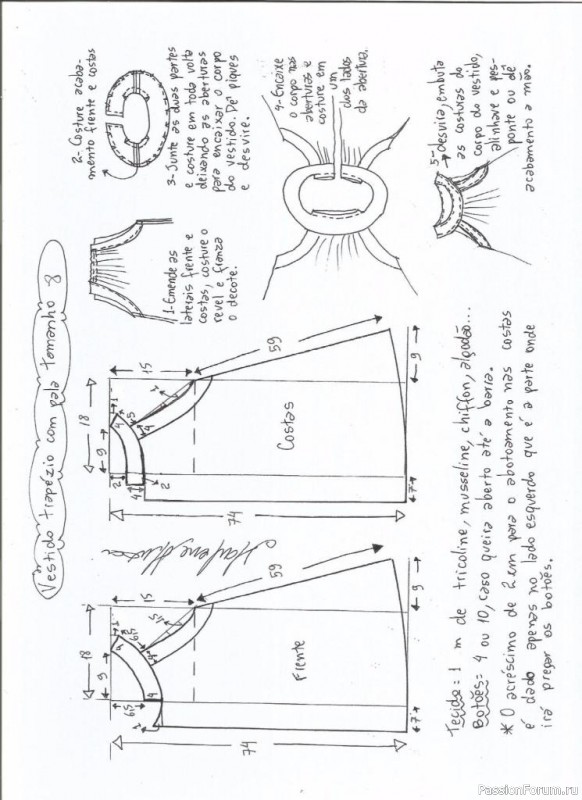 Vestido trapézio com pala tamanho 8
1-Emende as
laterais frente e
costas, costure o
revel e franza
o decote.
2- Costure acaba-
mento frente e costas
3- Junte as duas partes
e costure em toda volta
deixando as aberturas
para encaixar o corpo
do vestido. Dê piques
e desvire.
4-Encaixe
o corpo nas
aberturas e
costure em
um
dos lados
da abertura.
5-desvira, embuta
as costuras do
corpo do vestido,
alinhave e pes-
ponte ou dê
acabamento a mão.
18
15
9
1
4
59
Costas
6
2
4
2
74
7
18
15
9
1
4
1,5
59
Frente
6
4
2
74
7
Tecido = 1 m de tricoline, musseline, chiffon, algodão...
Botões = 4 ou 10, caso queira aberto até a barra.
* O acréscimo de 2 cm para o abotoamento nas costas
é dado apenas no lado esquerdo que é a parte onde
irá pregar os botões.
PassionForum.ru